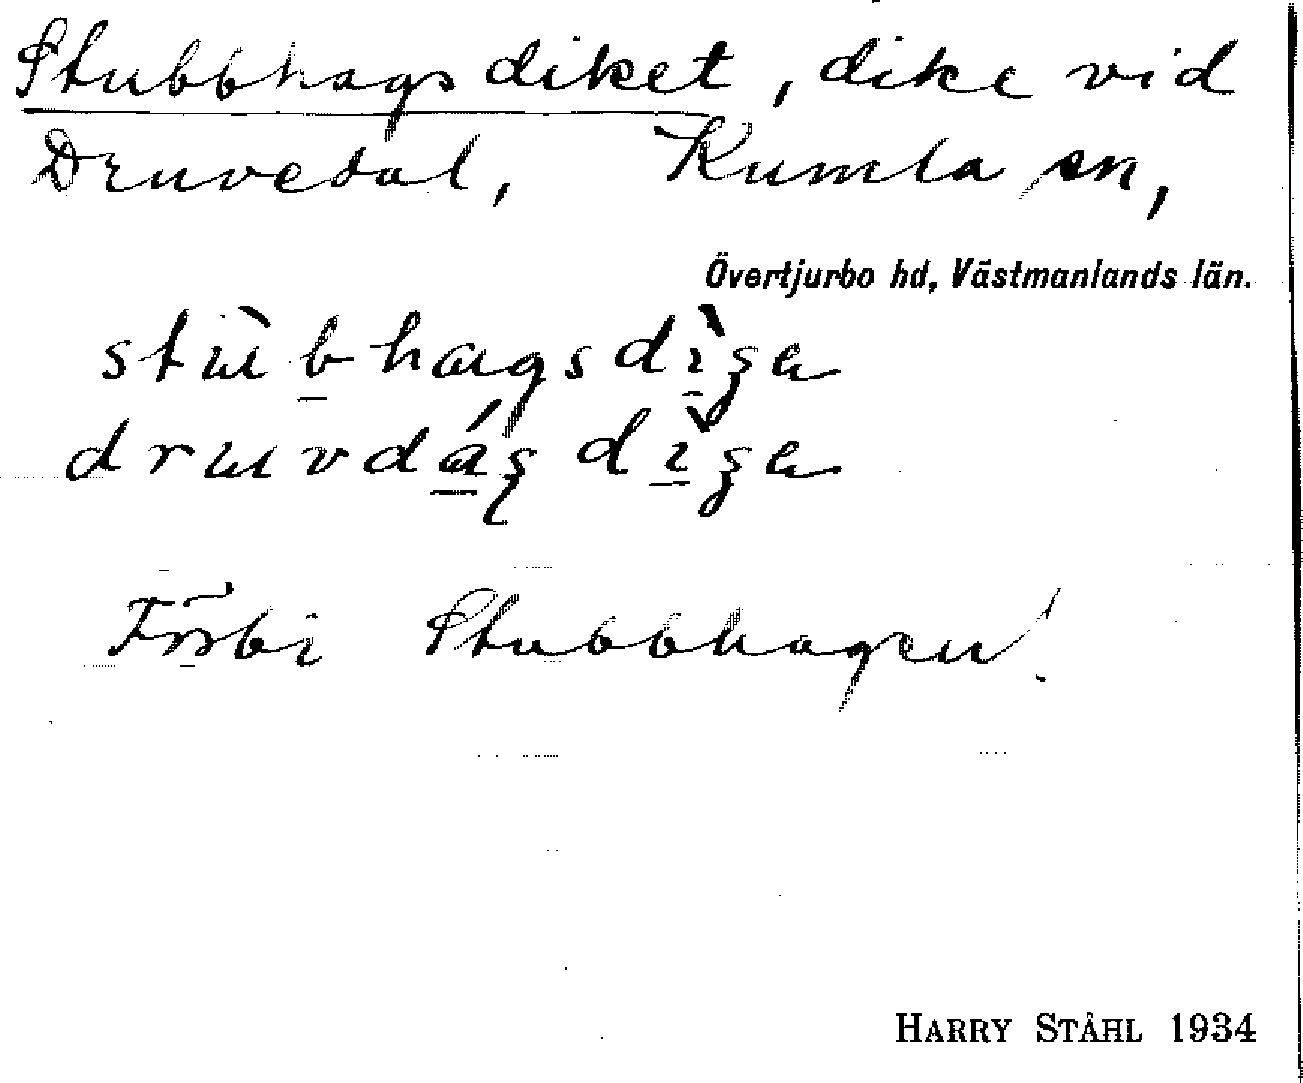 Stubbhagsdiket, dike vid
Druvedal, Kumla sn,
Övertjurbo hd, Västmanlands län.
Förbi Stubbhagen!
HARRY STÅHL 1934